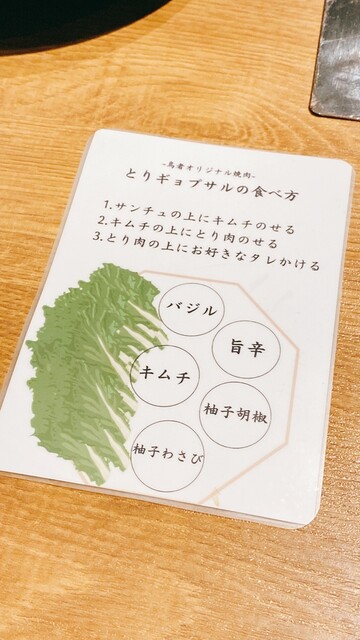 -鳥者オリジナル焼肉-
とりギョプサルの食べ方
1.サンチュの上にキムチのせる
2.キムチの上にとり肉のせる
3.とり肉の上にお好きなタレかける
バジル
旨辛
キムチ
柚子胡椒
柚子わさび